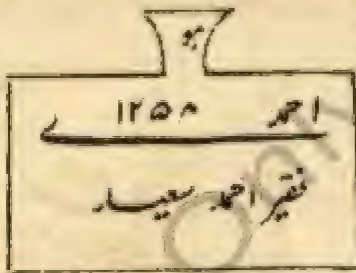 ہو
احمد ۱۲۵۸
فقیر احمد سعید